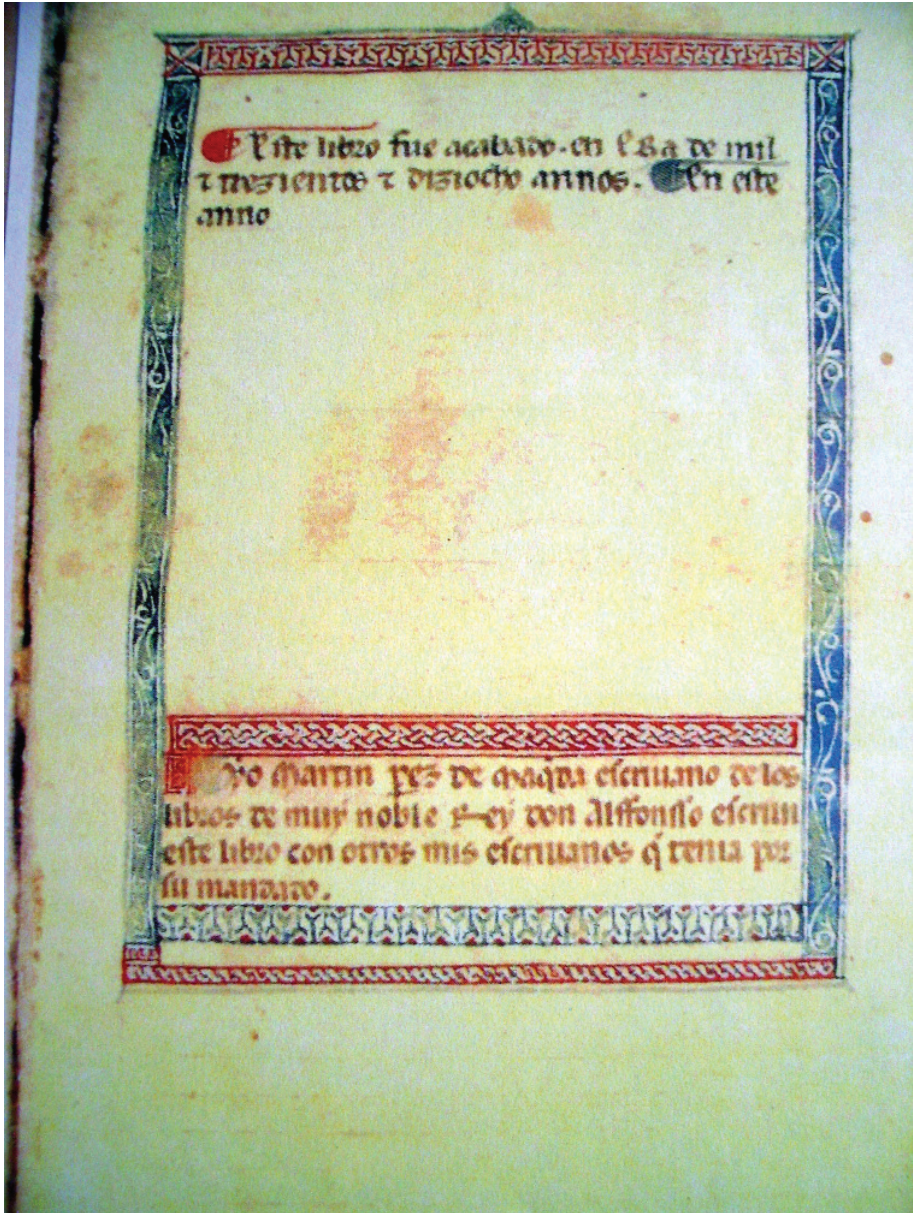 Este libro fue acabado. en Era de mil
⁊ trezientos ⁊ diziocho annos. En este
anno
Yo Martin perez de Maq̃da escriuano de los
libros de muy noble Rey don Alffonsso escriui
este libro con otros mis escriuanos q̃ tenia por
su mandado.